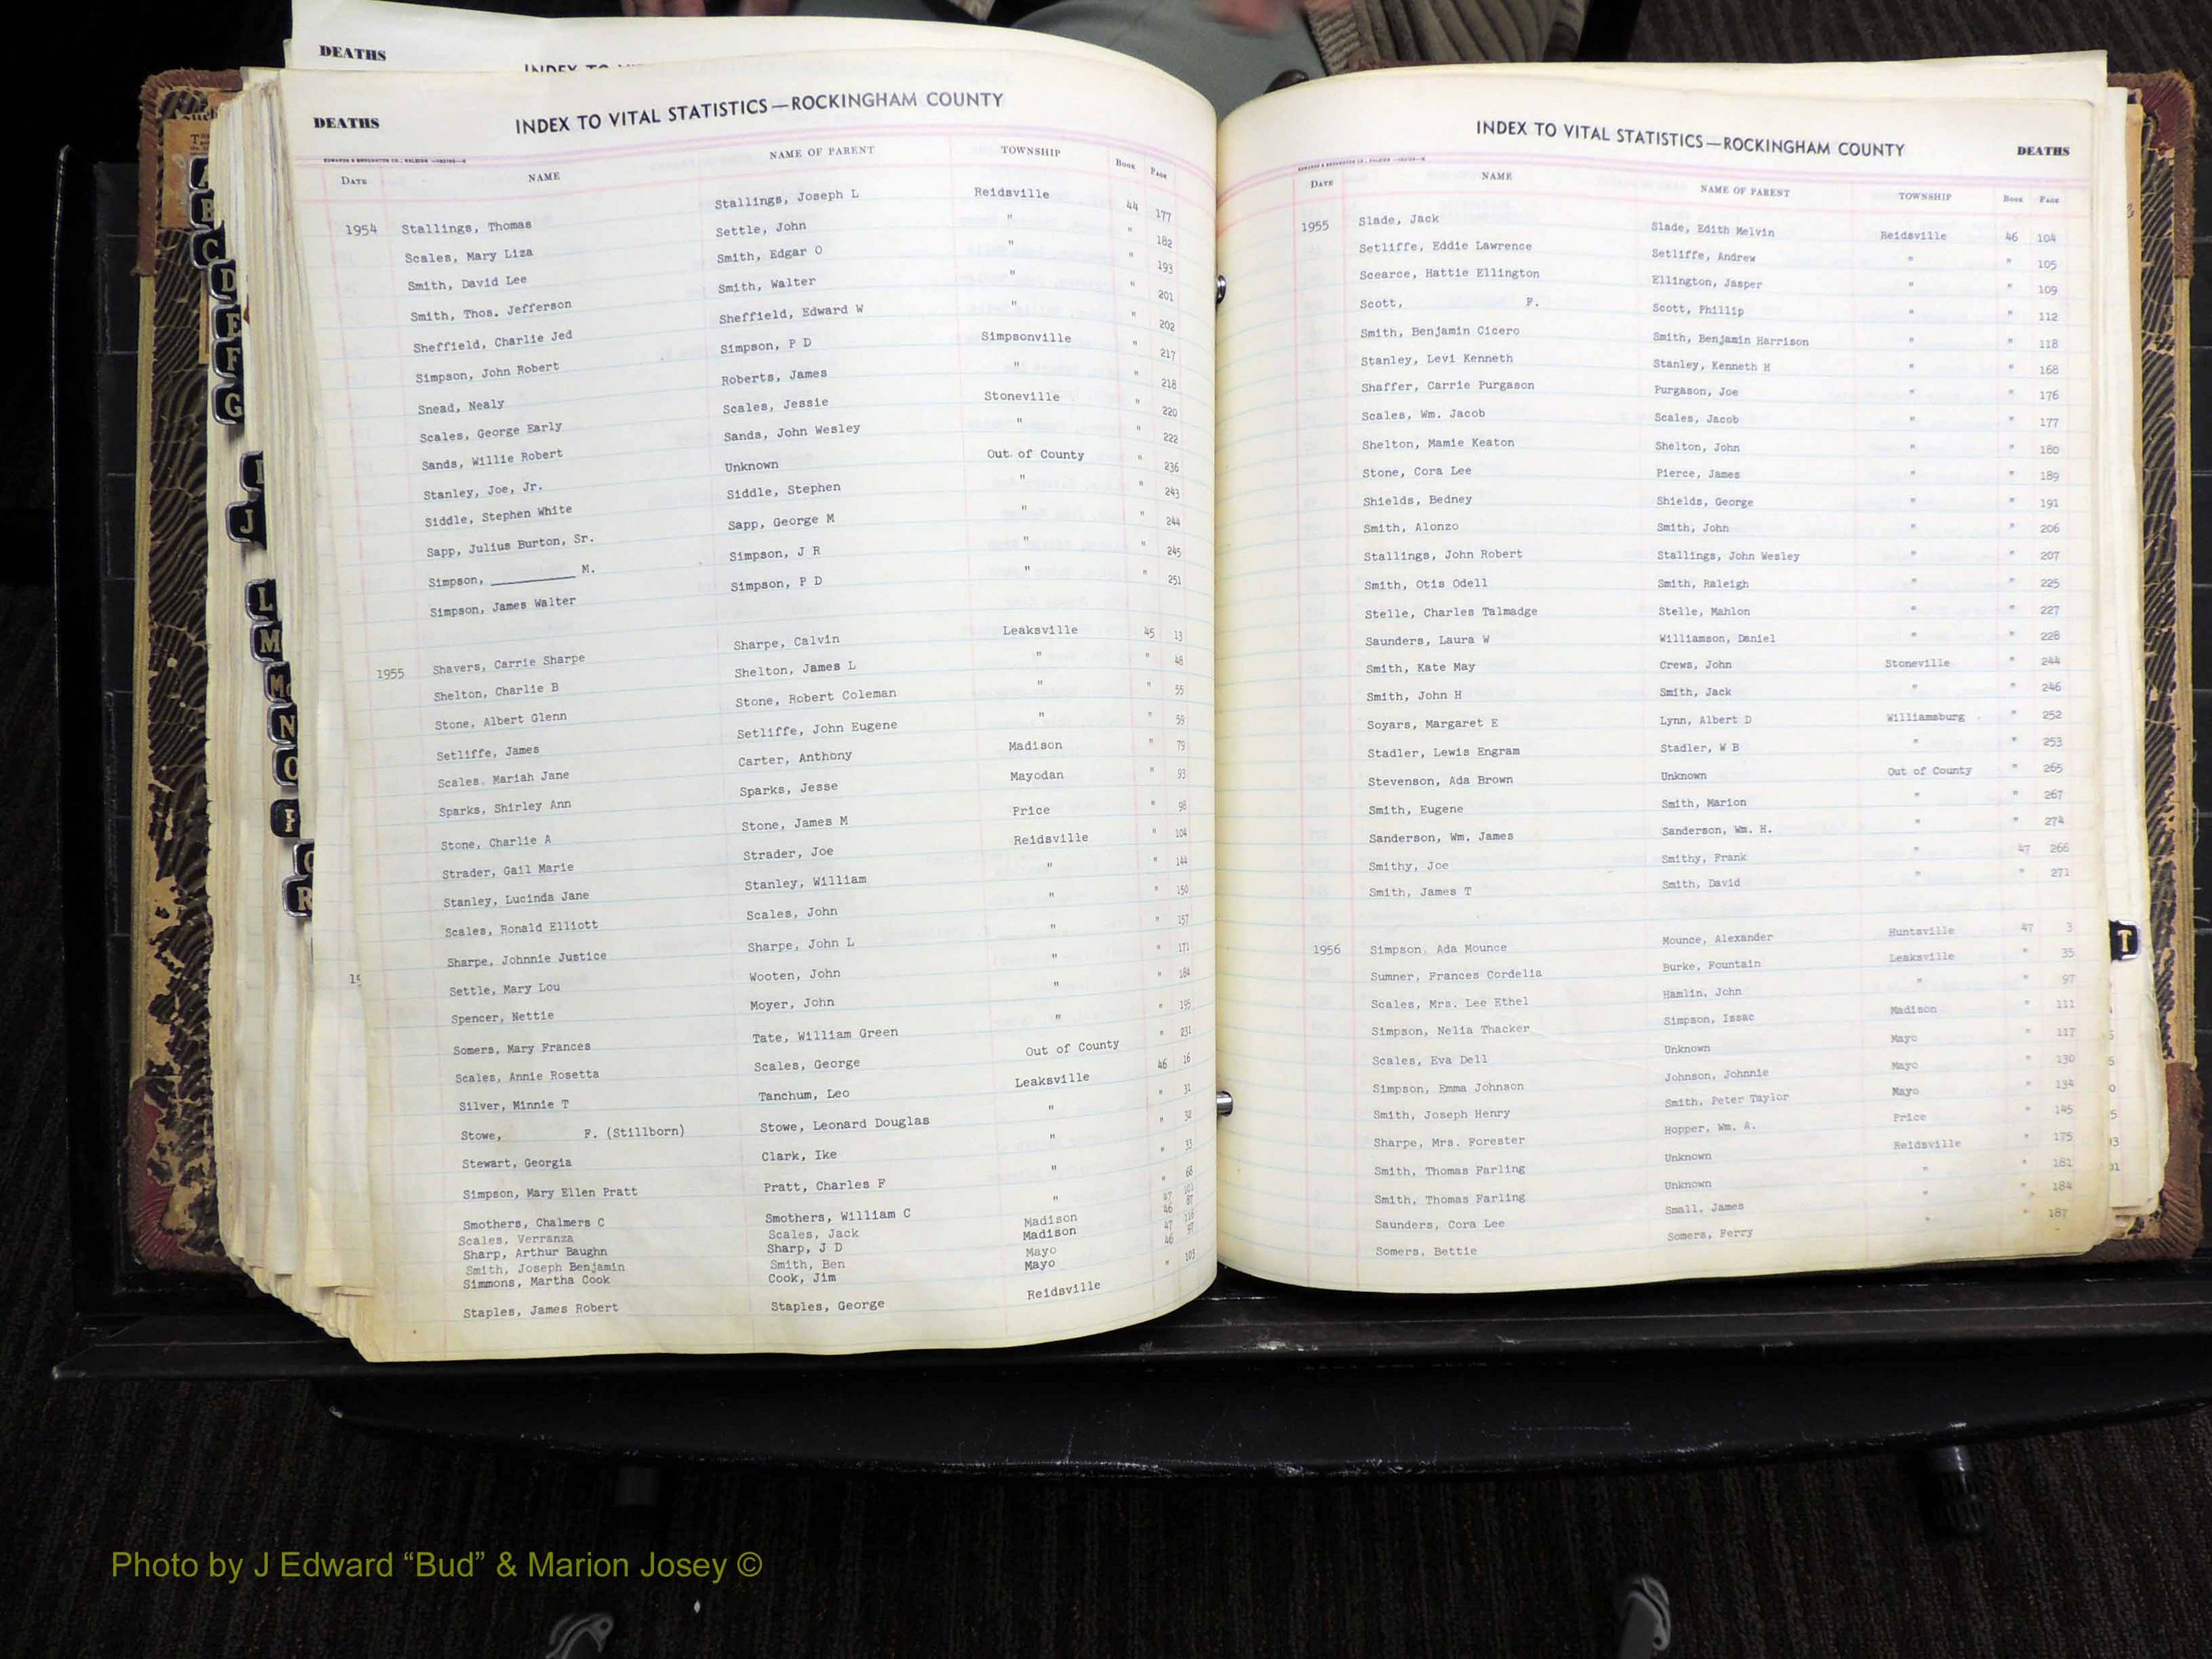 DEATHS
DEATHS
INDEX TO VITAL STATISTICS—ROCKINGHAM COUNTY
EDWARDS & BROUGHTON CO., RALEIGH
DATE NAME NAME OF PARENT TOWNSHIP BOOK PAGE
1954 Stallings, Thomas Stallings, Joseph L Reidsville 44 177
Scales, Mary Liza Settle, John " " 182
Smith, David Lee Smith, Edgar O " " 193
Smith, Thos. Jefferson Smith, Walter " " 201
Sheffield, Charlie Jed Sheffield, Edward W " " 202
Simpson, John Robert Simpson, P D Simpsonville " 217
Snead, Nealy Roberts, James " " 218
Scales, George Early Scales, Jessie Stoneville " 220
Sands, Willie Robert Sands, John Wesley " " 222
Stanley, Joe, Jr. Unknown Out of County " 236
Siddle, Stephen White Siddle, Stephen " " 243
Sapp, Julius Burton, Sr. Sapp, George M " " 244
Simpson, __________ M. Simpson, J R " " 245
Simpson, James Walter Simpson, P D " " 251
1955 Shavers, Carrie Sharpe Sharpe, Calvin Leaksville 45 13
Shelton, Charlie B Shelton, James L " " 48
Stone, Albert Glenn Stone, Robert Coleman " " 55
Setliffe, James Setliffe, John Eugene " " 59
Scales. Mariah Jane Carter, Anthony Madison " 79
Sparks, Shirley Ann Sparks, Jesse Mayodan " 93
Stone, Charlie A Stone, James M Price " 98
Strader, Gail Marie Strader, Joe Reidsville " 104
Stanley, Lucinda Jane Stanley, William " " 144
Scales, Ronald Elliott Scales, John " " 150
Sharpe, Johnnie Justice Sharpe, John L " " 157
Settle, Mary Lou Wooten, John " " 171
Spencer, Nettie Moyer, John " " 184
Somers, Mary Frances Tate, William Green " " 195
Scales, Annie Rosetta Scales, George Out of County " 231
Silver, Minnie T Tanchum, Leo Leaksville 46 16
Stowe, F. (Stillborn) Stowe, Leonard Douglas " " 31
Stewart, Georgia Clark, Ike " " 32
Simpson, Mary Ellen Pratt Pratt, Charles F " " 33
Smothers, Chalmers C Smothers, William C " " 68
Scales, Verranza Scales, Jack Madison 47 101
Sharp, Arthur Baughn Sharp, J D Madison 46 87
Smith, Joseph Benjamin Smith, Ben Mayo 47 116
Simmons, Martha Cook Cook, Jim Mayo 46 97
Staples, James Robert Staples, George Reidsville " 103
INDEX TO VITAL STATISTICS—ROCKINGHAM COUNTY
DEATHS
DATE NAME NAME OF PARENT TOWNSHIP BOOK PAGE
1955 Slade, Jack Slade, Edith Melvin Reidsville 46 104
Setliffe, Eddie Lawrence Setliffe, Andrew " " 105
Scearce, Hattie Ellington Ellington, Jasper " " 109
Scott, F. Scott, Phillip " " 112
Smith, Benjamin Cicero Smith, Benjamin Harrison " " 118
Stanley, Levi Kenneth Stanley, Kenneth H " " 168
Shaffer, Carrie Purgason Purgason, Joe " " 176
Scales, Wm. Jacob Scales, Jacob " " 177
Shelton, Mamie Keaton Shelton, John " " 180
Stone, Cora Lee Pierce, James " " 189
Shields, Bedney Shields, George " " 191
Smith, Alonzo Smith, John " " 206
Stallings, John Robert Stallings, John Wesley " " 207
Smith, Otis Odell Smith, Raleigh " " 225
Stelle, Charles Talmadge Stelle, Mahlon " " 227
Saunders, Laura W Williamson, Daniel " " 228
Smith, Kate May Crews, John Stoneville " 244
Smith, John H Smith, Jack " " 246
Soyars, Margaret E Lynn, Albert D Williamsburg " 252
Stadler, Lewis Engram Stadler, W B " " 253
Stevenson, Ada Brown Unknown Out of County " 265
Smith, Eugene Smith, Marion " " 267
Sanderson, Wm. James Sanderson, Wm. H. " " 274
Smithy, Joe Smithy, Frank " 47 266
Smith, James T Smith, David " " 271
1956 Simpson, Ada Mounce Mounce, Alexander Huntsville 47 3
Sumner, Frances Cordelia Burke, Fountain Leaksville " 35
Scales, Mrs. Lee Ethel Hamlin, John " " 97
Simpson, Nelia Thacker Simpson, Issac Madison " 111
Scales, Eva Dell Unknown Mayo " 117
Simpson, Emma Johnson Johnson, Johnnie Mayo " 130
Smith, Joseph Henry Smith, Peter Taylor Mayo " 134
Sharpe, Mrs. Forester Hopper, Wm. A. Price " 145
Smith, Thomas Farling Unknown Reidsville " 175
Smith, Thomas Farling Unknown " " 181
Saunders, Cora Lee Small, James " " 184
Somers, Bettie Somers, Perry " " 187
D
E
F
G
J
L
M
Mc
N
O
R
T
Photo by J Edward “Bud” & Marion Josey ©